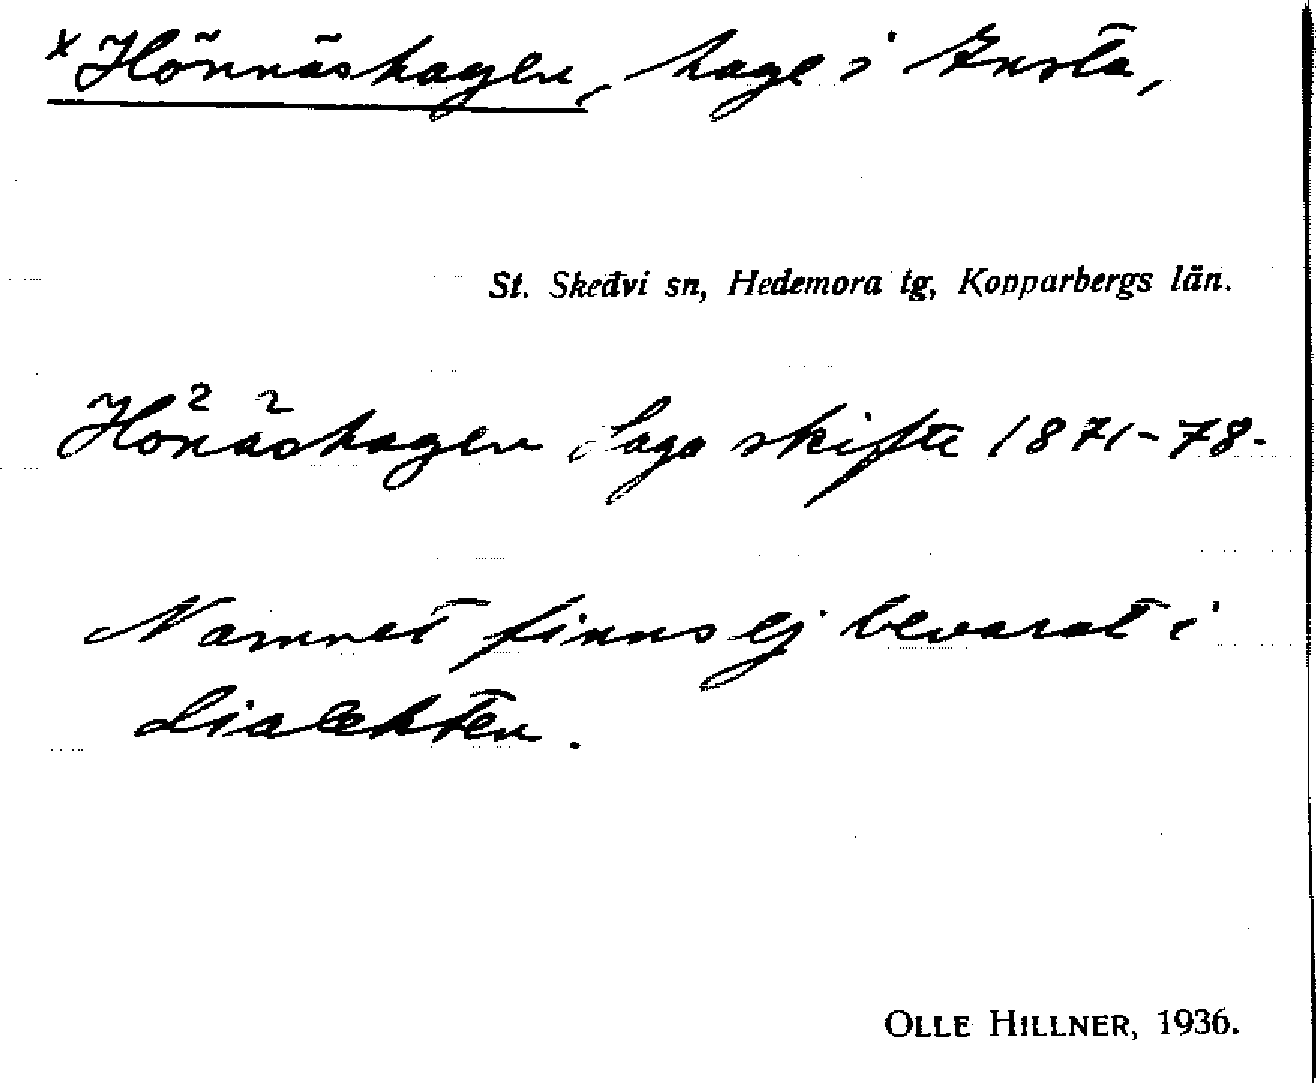 × Hönnäshagen, hage i Knsta,
St. Skedvi sn, Hedemora tg, Kopparbergs län.
Hönäshagen Laga skifte 1871-78.
Namnet finns ej bevarat i
dialekten.
OLLE HILLNER, 1936.